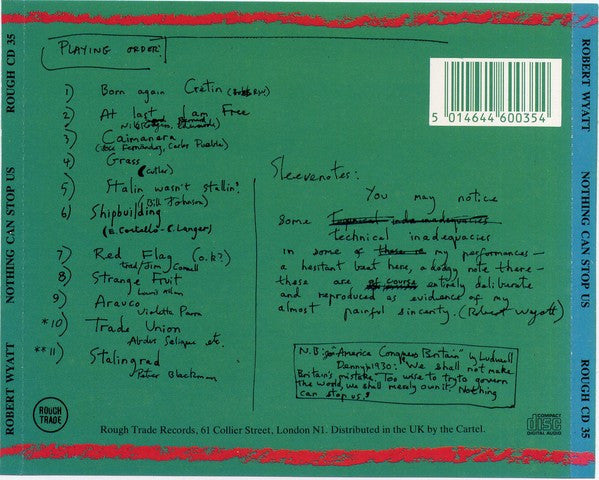 ROBERT WYATT NOTHING CAN STOP US ROUGH CD 35
PLAYING ORDER
1) Born again Cretin
2) At last I am Free
Nile Rodgers, Bernard Edwards
3) Caimanera
(Jose Fernandez, Carlos Puebla)
4) Grass
(Cutler)
5) Stalin wasn't stallin?
(Bill Johnson)
6) Shipbuilding
(E. Costello - C. Langer)
7) Red Flag (o.k?)
trad/Jim Connell
8) Strange Fruit
Lewis Allan
9) Arauco
Violetta Parra
*10) Trade Union
Abdus Salique etc.
**11) Stalingrad
Peter Blackman
5 014644 600354
Sleevenotes:
You may notice
some Technical inadequacies
technical inadequacies
in some of these in my performances –
a hesitant beat here, a dodgy note there –
these are of course entirely deliberate
and reproduced as evidence of my
almost painful sincerity. (Robert Wyatt)
N.B: "America Conquers Britain" by Ludwell
Denny, 1930: "We shall not make
Britain's mistake. Too wise to try to govern
the world, we shall merely own it. Nothing
can stop us."
ROUGH
TRADE
COMPACT
disc
DIGITAL AUDIO
Rough Trade Records, 61 Collier Street, London N1. Distributed in the UK by the Cartel.
ROBERT WYATT NOTHING CAN STOP US ROUGH CD 35